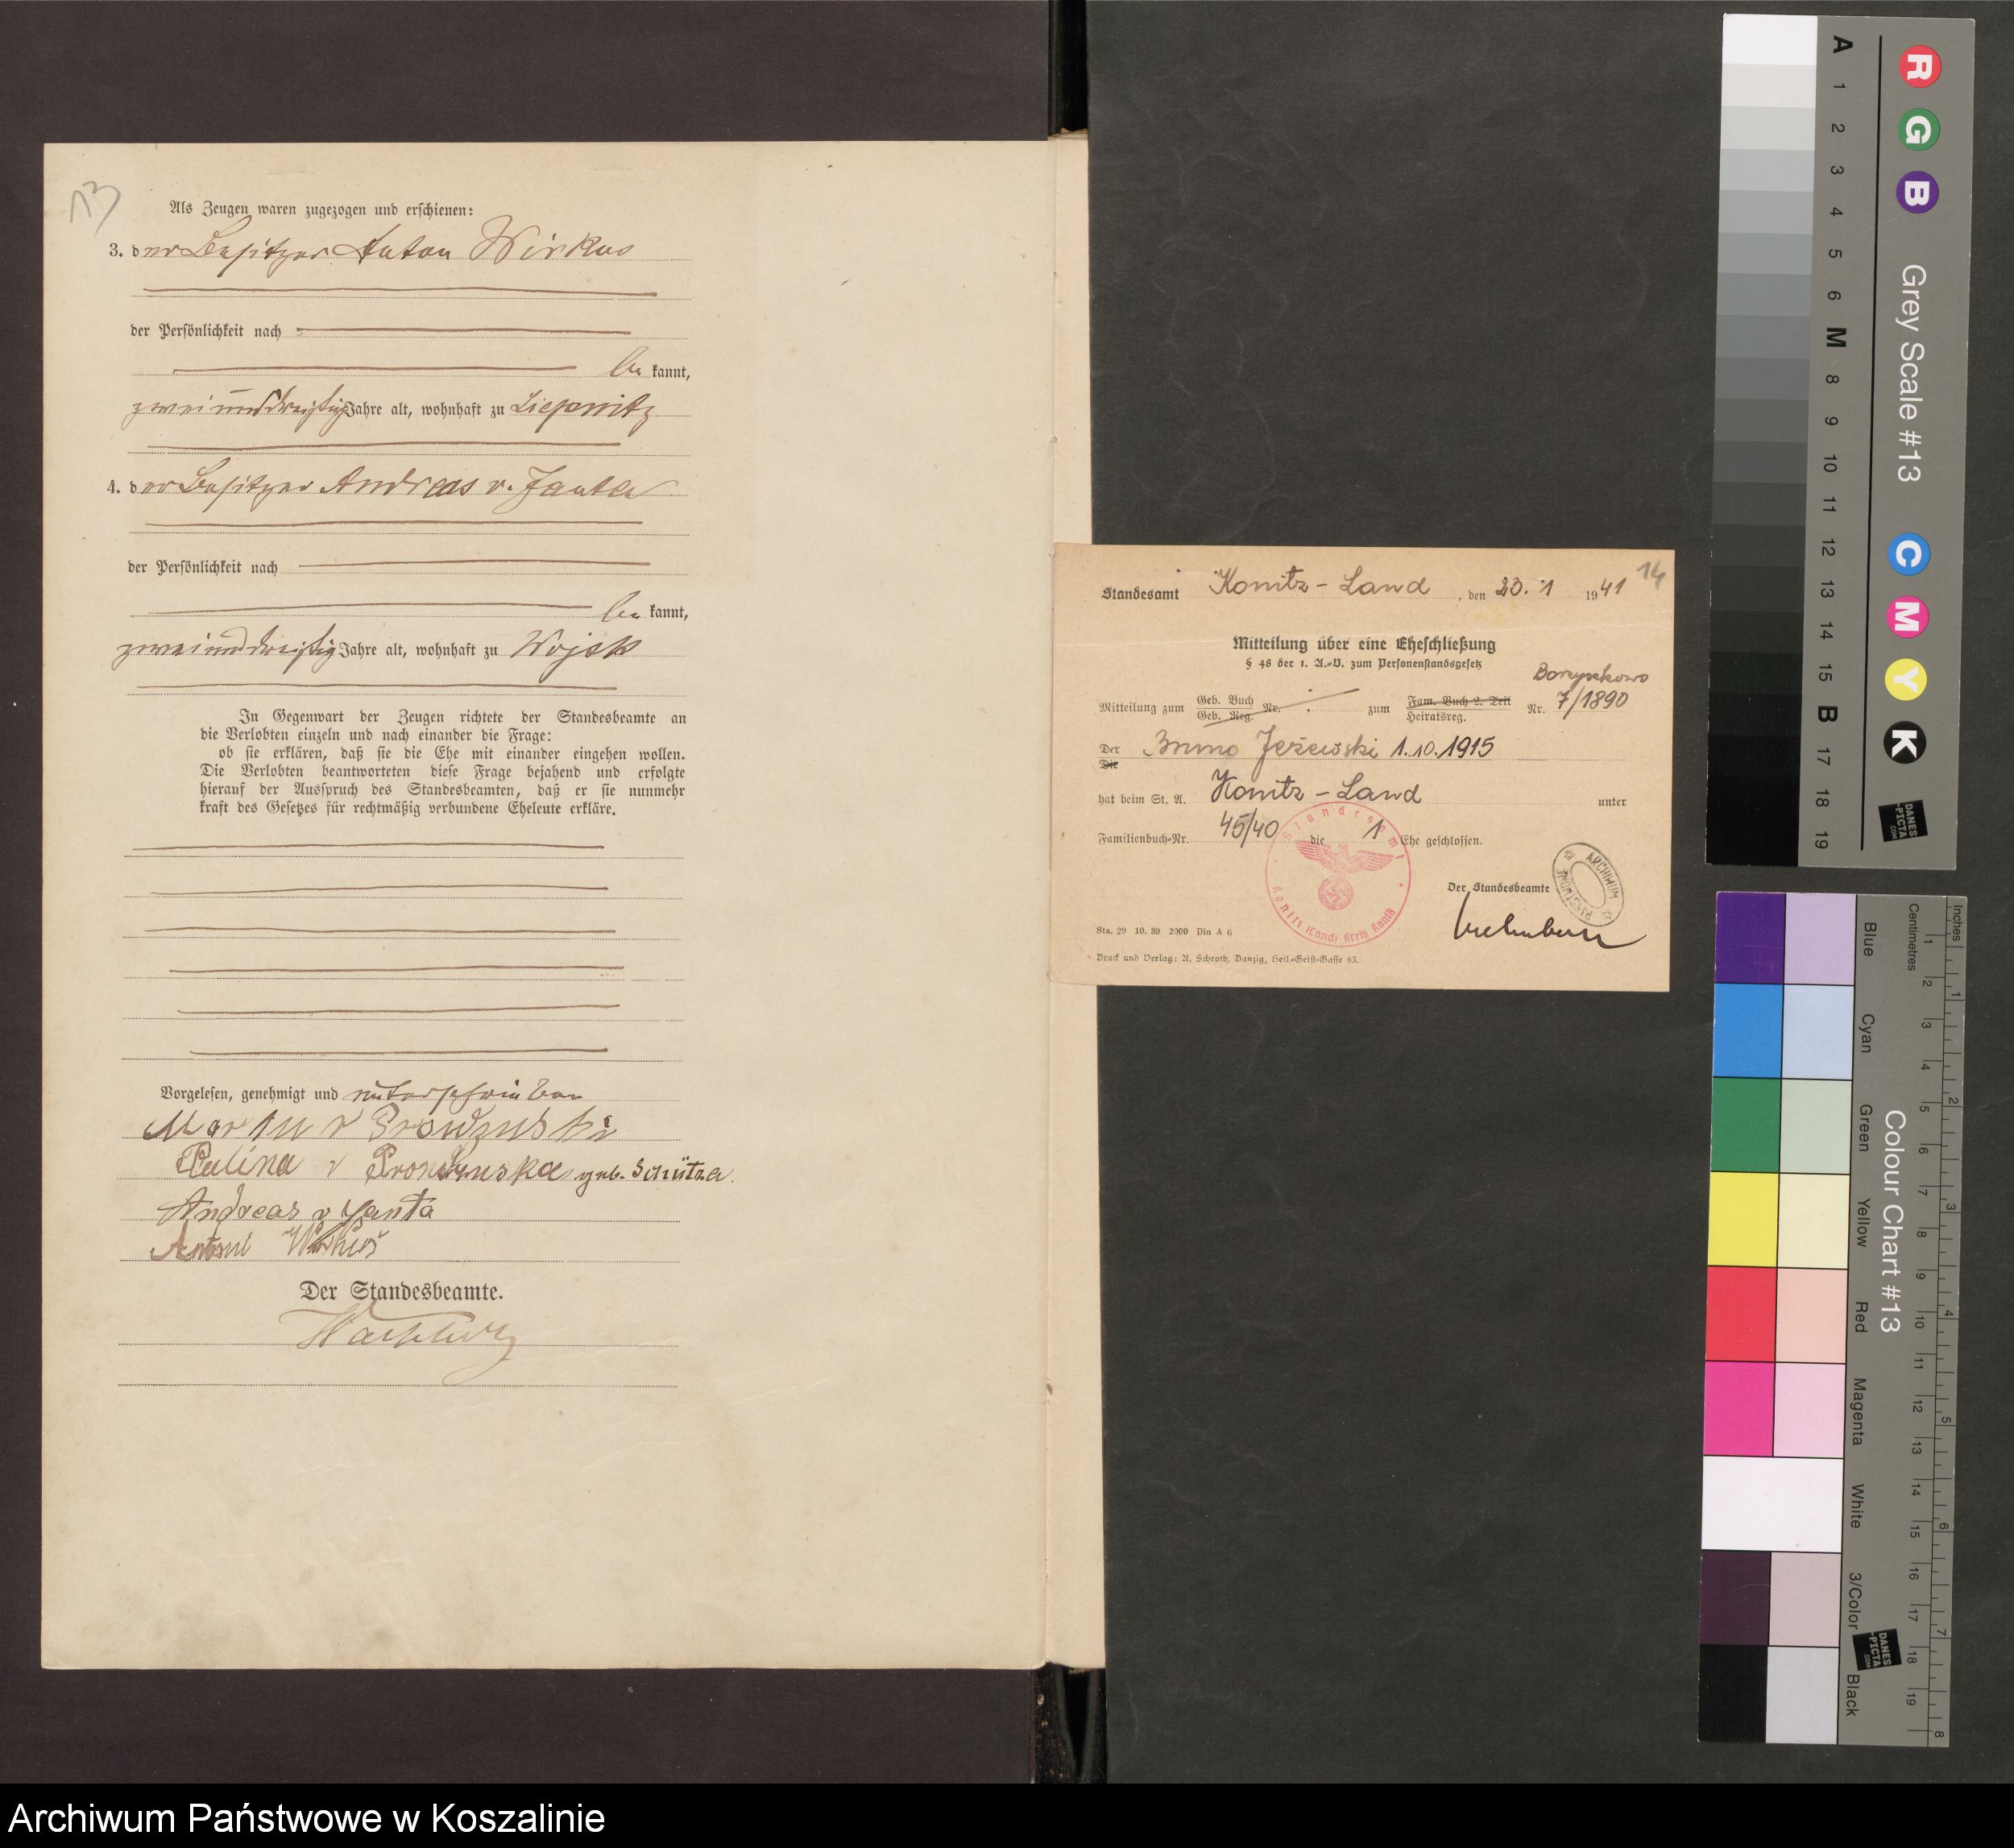 13
Als Zeugen waren zugezogen und erschienen:
3. der Besitzer Anton Wirkus
der Persönlichkeit nach
be kannt,
zweiunddreißig Jahre alt, wohnhaft zu Liepnitz
4. der Besitzer Andreas v. Janta
der Persönlichkeit nach
be kannt,
zweiunddreißig Jahre alt, wohnhaft zu Wojsk
In Gegenwart der Zeugen richtete der Standesbeamte an
die Verlobten einzeln und nach einander die Frage:
ob sie erklären, daß sie die Ehe mit einander eingehen wollen.
Die Verlobten beantworteten diese Frage bejahend und erfolgte
hierauf der Ausspruch des Standesbeamten, daß er sie nunmehr
kraft des Gesetzes für rechtmäßig verbundene Eheleute erkläre.
Vorgelesen, genehmigt und unterschrieben
v
Palina v geb. Schütza.
Andreas v Janta
Antoni Wirkus
Der Standesbeamte.
14
Standesamt Konitz-Land, den 23. 1 1941
Mitteilung über eine Eheschließung
§ 48 der 1. A.-V. zum Personenstandsgesetz
Boryszkowo
Mitteilung zum Geb. Buch Geb. Reg. Nr. zum Fam. Buch 2. Teil Heiratsreg. Nr. 7/1890
Der Die Bruno Jeżewski 1.10.1915
hat beim St. A. Konitz-Land unter
Familienbuch-Nr. 45/40 die 1 Ehe geschlossen.
Standesamt
Konitz (Land) Kreis Konitz
Der Standesbeamte
ARCHIWUM PAŃSTWOWE
Sta. 29 10. 39 2000 Din A 6
Druck und Verlag: A. Schroth, Danzig, Heil.-Geist-Gasse 83.
A 1 2 3 4 5 6 M 8 9 10 11 12 13 14 15 B 17 18 19
R G B Grey Scale #13 C M Y K
DANES-PICTA.COM
Blue Cyan Green Yellow Red Magenta White 3/Color Black
Colour Chart #13
DANES-PICTA.COM
Centimetres 1 2 3 4 5 6 7 8 9 10 11 12 13 14 15 16 17 18 19
Inches 1 2 3 4 5 6 7 8
Archiwum Państwowe w Koszalinie